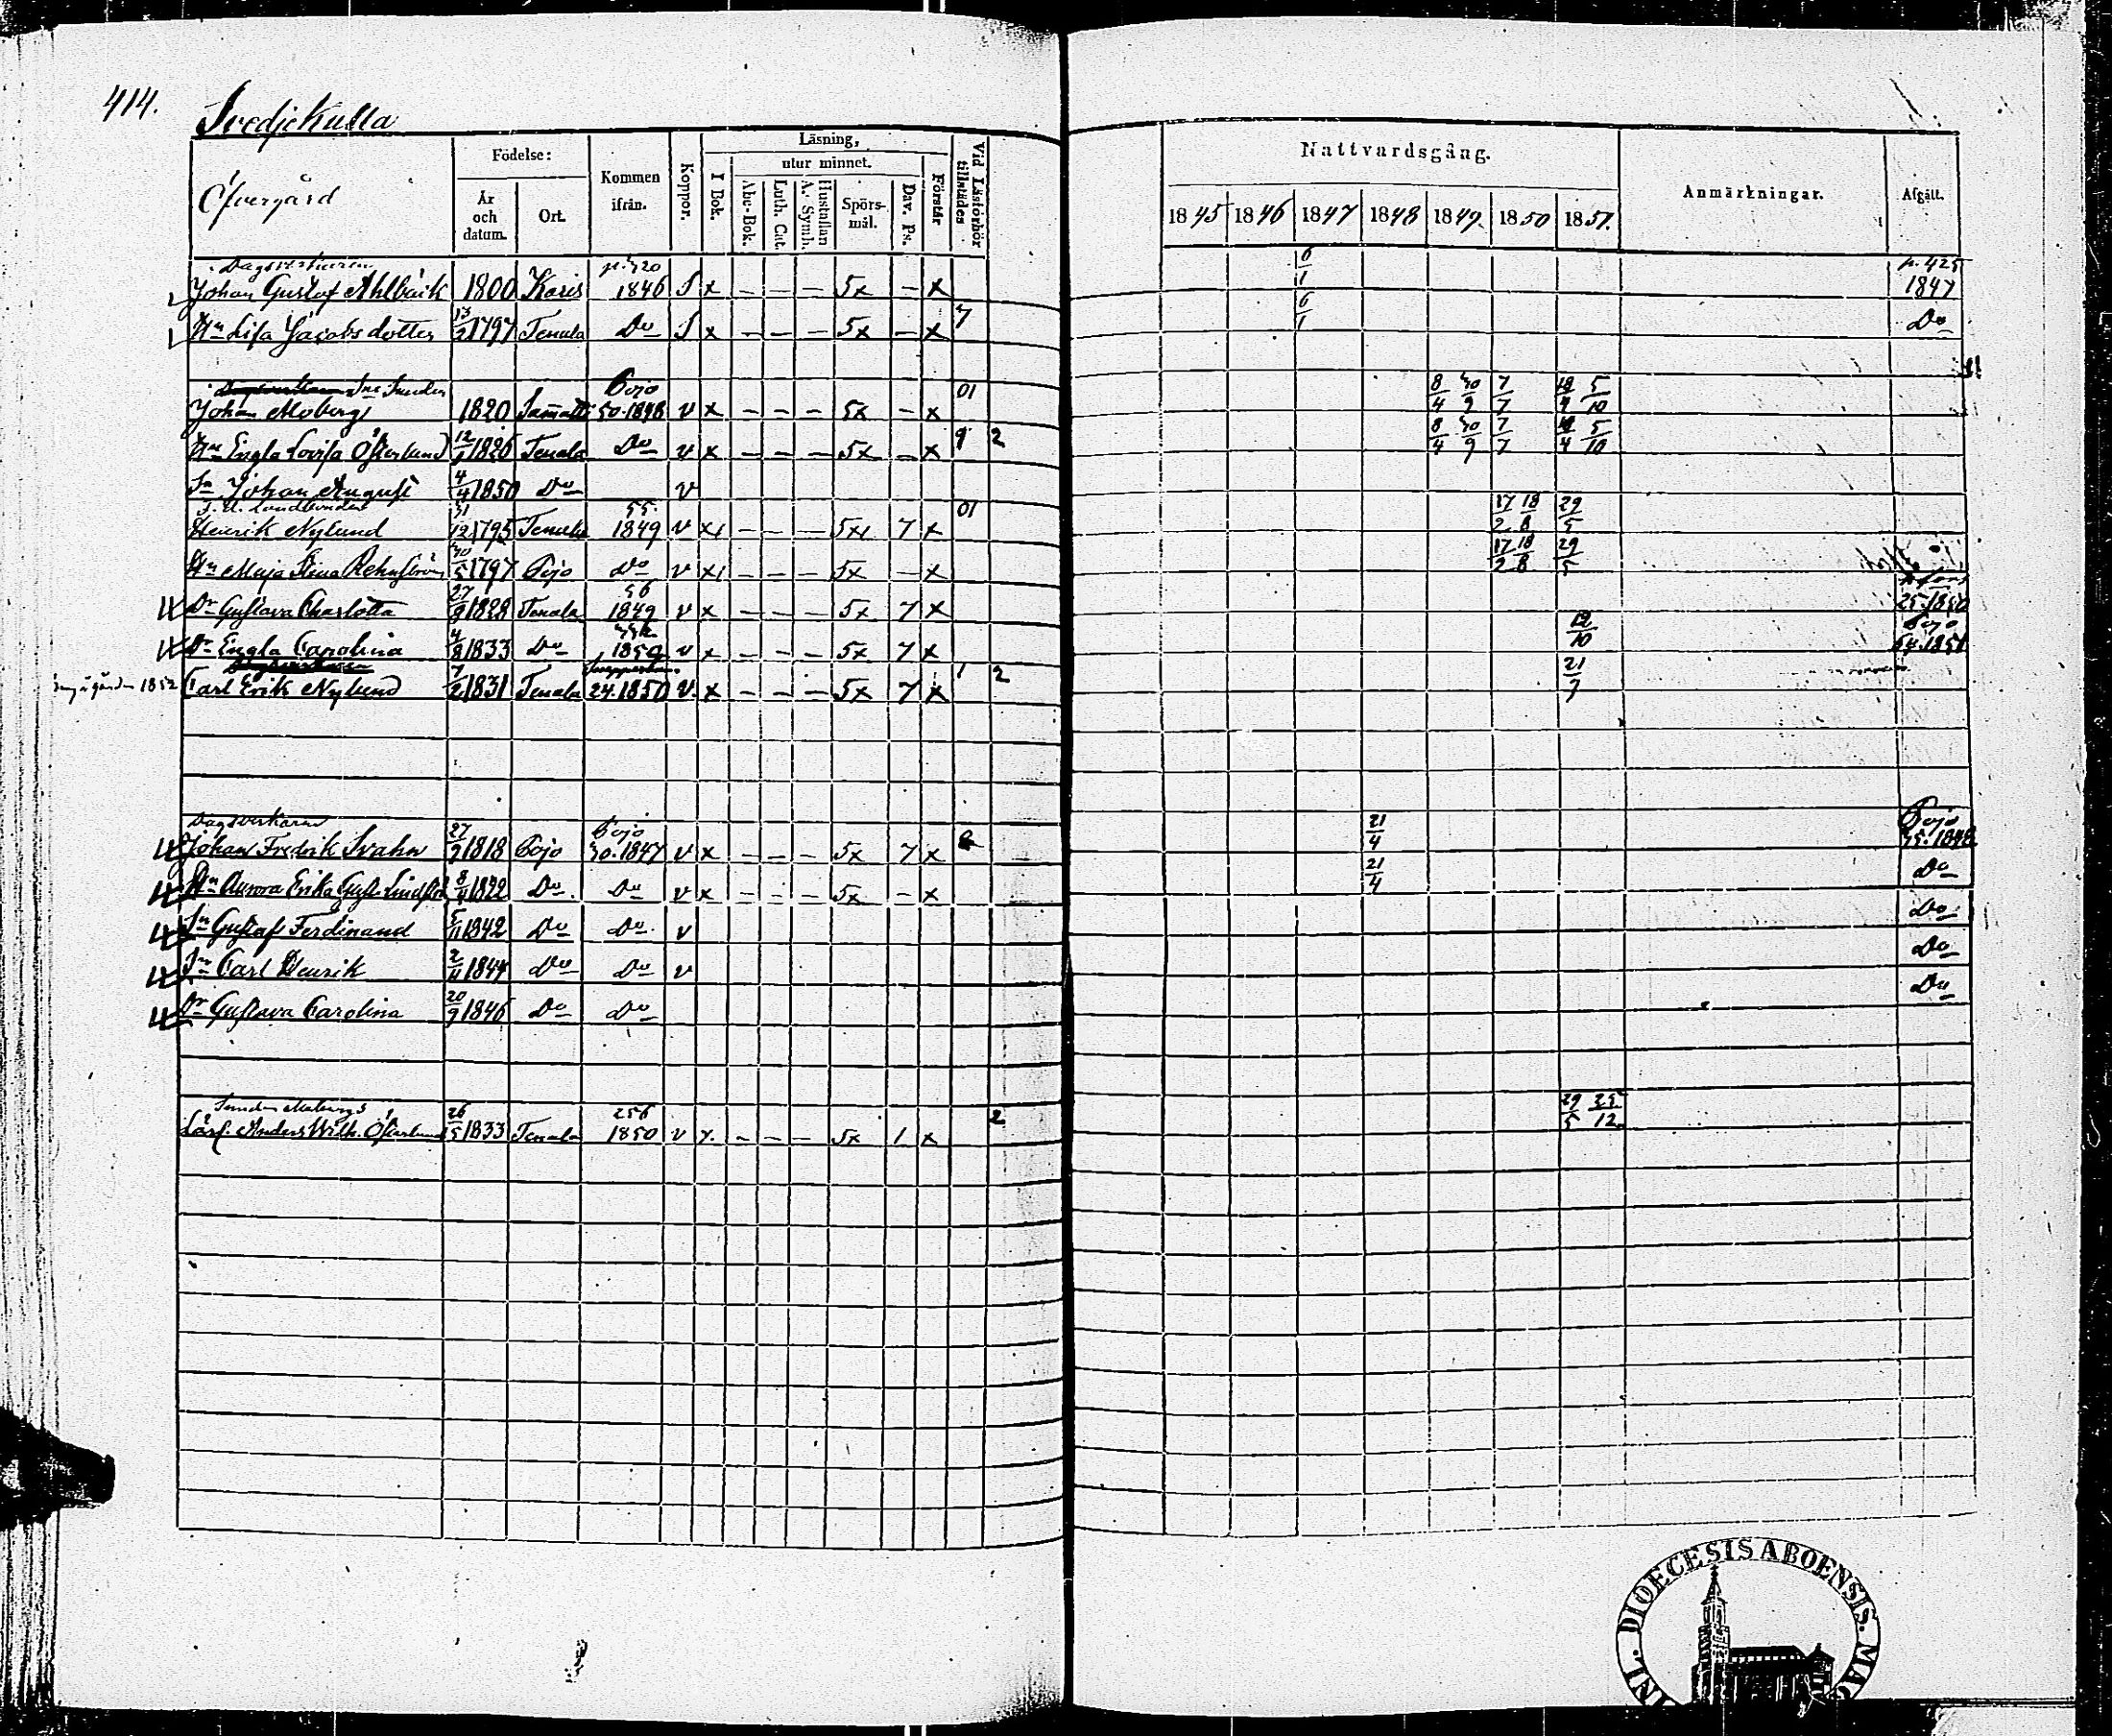 414.
Svedjekulla
Öfvergård
Födelse:
År och datum.
Ort.
Kommen ifrån.
Koppor.
Läsning,
I Bok.
utur minnet.
Abc-Bok.
Luth. Cat.
Hustaflan A. Symb.
Spörs-mål.
Dav. Ps.
Förstår
Vid Läsförhör tillstädes
Nattvardsgång.
1845 1846 1847 1848 1849. 1850 1851.
Anmärkningar.
Afgått.
Dagsverkaren p. 420 6/1 p. 425
Johan Gustaf Ahlbäck 1800 Karis 1846 S x – – – 5x – x 1847
Hu Lisa Jacobsdotter 13/2 1797 Tenala Do S x – – – 5x – x 7 6/1 Do
Pojo 01
Johan Moberg 1820 Sammatti 50.1848 v x – – – 5x – x 8/4 30/9 7/7 5/10
Hu Engla Lovisa Österlund 1826 Tenala Do v x – – – 5x – x 9 2 8/4 30/9 7/7 5/10
Sn Johan August 4/4 1850 Do v
Landbonden 55. 01
Henrik Nylund 31/12 1795 Tenala 1849 v x – – – 5x 7 x 17/2 18/8 29/5
Hu Maja Stina Rehnström 30/5 1797 Pojo Do v x – – – 5x – x 17/2 18/8 29/5
Dr Gustava Charlotta 1828 Tenala 56 1849 v x – – – 5x 7 x 25.1850
Dr Engla Carolina 1833 Do 1850 v x – – – 5x 7 x 12/10 Pojo 64.1851
Carl Erik Nylund 7/2 1831 Tenala 24.1850 v x – – – 5x 7 x 1 2 21/7
1852
Dagsverkaren Pojo Pojo
Johan Fredrik Svahn 27/9 1818 Pojo 30.1847 v x – – – 5x 7 x 21/4 35.1848
Hu Aurora Erika Gust. Lindström 1822 Do Do v x – – – 5x – x 21/4 Do
Sn Gustaf Ferdinand 5/11 1842 Do Do v Do
Sn Carl Henrik 2/11 1844 Do Do v Do
Dr Gustava Carolina 20/9 1846 Do Do Do
Smeden Mobergs 256 2
Lärl. Anders Wilh. Österlund 26/5 1833 Tenala 1850 v x – – – 5x 1 x 29/5 25/12
DIOECESIS ABOENSIS. MAG